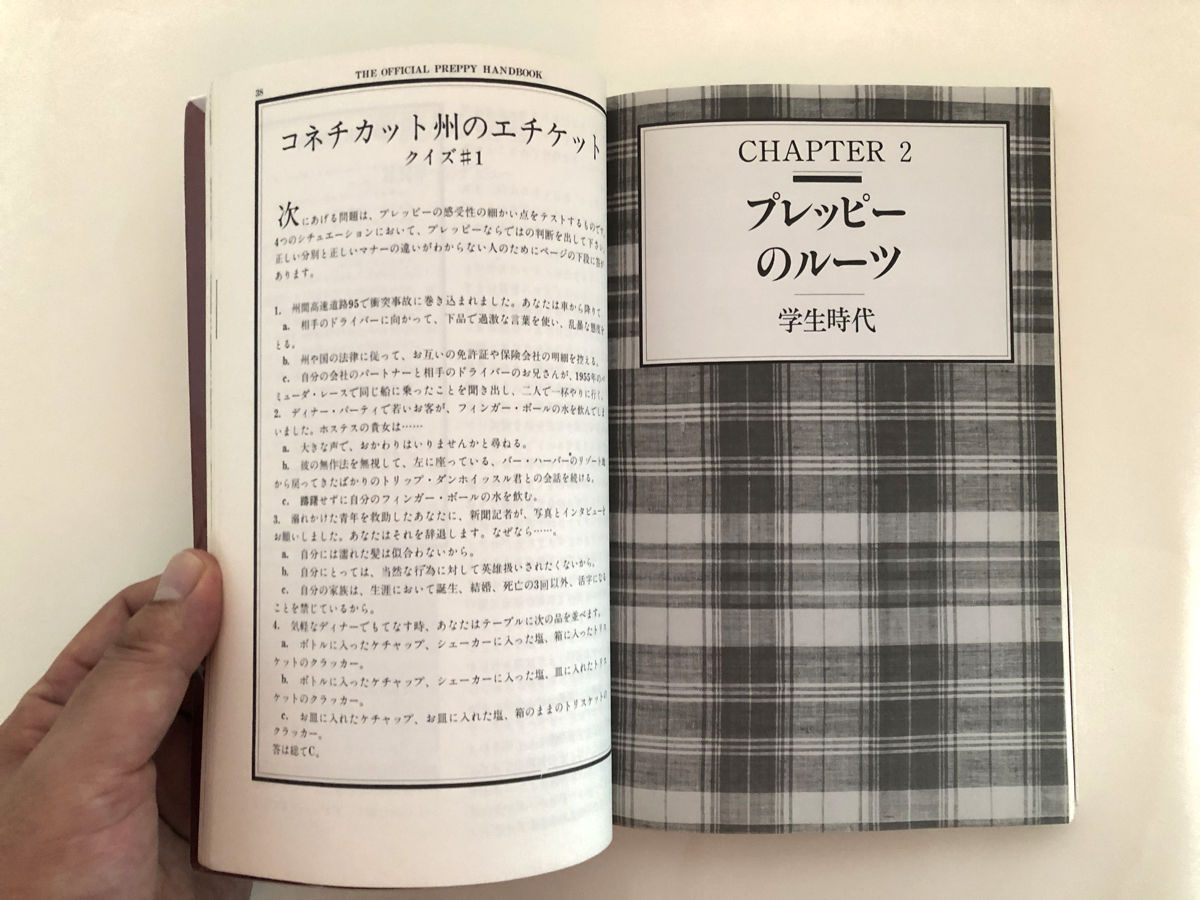 THE OFFICIAL PREPPY HANDBOOK
38
コネチカット州のエチケット
クイズ♯1
次にあげる問題は、プレッピーの感受性の細かい点をテストするものです
4つのシチュエーションにおいて、プレッピーならではの判断を出して下さい。
正しい分別と正しいマナーの違いがわからない人のためにページの下段に答が
あります。
1. 州間高速道路95で衝突事故に巻き込まれました。あなたは車から降りて
a. 相手のドライバーに向かって、下品で過激な言葉を使い、乱暴な態度を
とる。
b. 州や国の法律に従って、お互いの免許証や保険会社の明細を控える。
c. 自分の会社のパートナーと相手のドライバーのお兄さんが、1955年の
ミューダ・レースで同じ船に乗ったことを聞き出し、二人で一杯やりに行く。
2. ディナー・パーティで若いお客が、フィンガー・ボールの水を飲んでしま
いました。ホステスの貴女は……
a. 大きな声で、おかわりはいりませんかと尋ねる。
b. 彼の無作法を無視して、左に座っている、バー・ハーバーのリゾート
から戻ってきたばかりのトリップ・ダンホイッスル君との会話を続ける。
c. 躊躇せずに自分のフィンガー・ボールの水を飲む。
3. 溺れかけた青年を救助したあなたに、新聞記者が、写真とインタビューを
お願いしました。あなたはそれを辞退します。なぜなら……。
a. 自分には濡れた髪は似合わないから。
b. 自分にとっては、当然な行為に対して英雄扱いされたくないから。
c. 自分の家族は、生涯において誕生、結婚、死亡の3回以外、活字になる
ことを禁じているから。
4. 気軽なディナーでもてなす時、あなたはテーブルに次の品を並べます。
a. ボトルに入ったケチャップ、シェーカーに入った塩、箱に入ったトリス
ケットのクラッカー。
b. ボトルに入ったケチャップ、シェーカーに入った塩、皿に入れたトリス
ケットのクラッカー。
c. お皿に入れたケチャップ、お皿に入れた塩、箱のままのトリスケットの
クラッカー。
答は総てC。
CHAPTER 2
プレッピー
のルーツ
学生時代